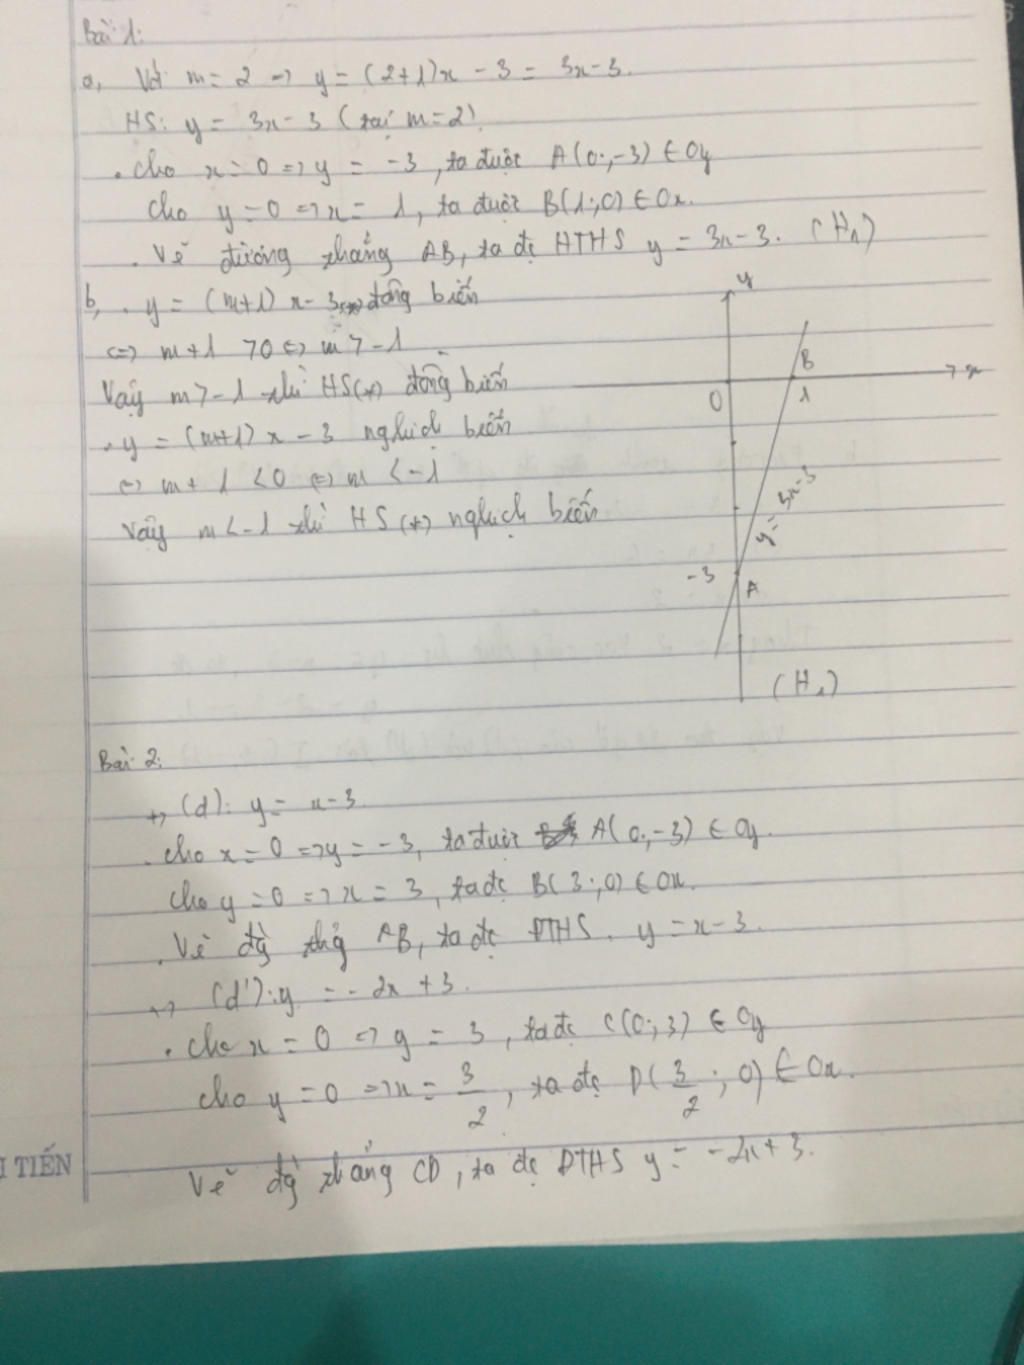 Bài 1:
a, Với m = 2 → y = (2+1)x - 3 = 3x - 3.
HS: y = 3x - 3 (tại m = 2)
. Cho x = 0 => y = -3, ta được A(0;-3) ∈ Oy
Cho y = 0 => x = 1, ta được B(1;0) ∈ Ox.
. Vẽ đường thẳng AB, ta đc ĐTHS y = 3x - 3. (H1)
b, . y = (m+1)x - 3 (*) đồng biến
<=> m + 1 > 0 <=> m > -1
Vậy m > -1 thì HS(*) đồng biến
. y = (m+1)x - 3 nghịch biến
<=> m + 1 < 0 <=> m < -1
Vậy m < -1 thì HS(*) nghịch biến
y
B
x
O
1
y = 3x - 3
-3
A
(H1)
Bài 2:
+, (d): y = x - 3
. Cho x = 0 => y = -3, ta được A(0;-3) ∈ Oy.
Cho y = 0 => x = 3, ta đc B(3;0) ∈ Ox.
. Vẽ đg thẳg AB, ta đc ĐTHS. y = x - 3.
+, (d'): y = -2x + 3.
. Cho x = 0 => y = 3, ta đc C(0;3) ∈ Oy
Cho y = 0 => x = 3/2, ta đc D(3/2; 0) ∈ Ox.
Vẽ đg thẳng CD, ta đc ĐTHS y = -2x + 3.
I TIẾN